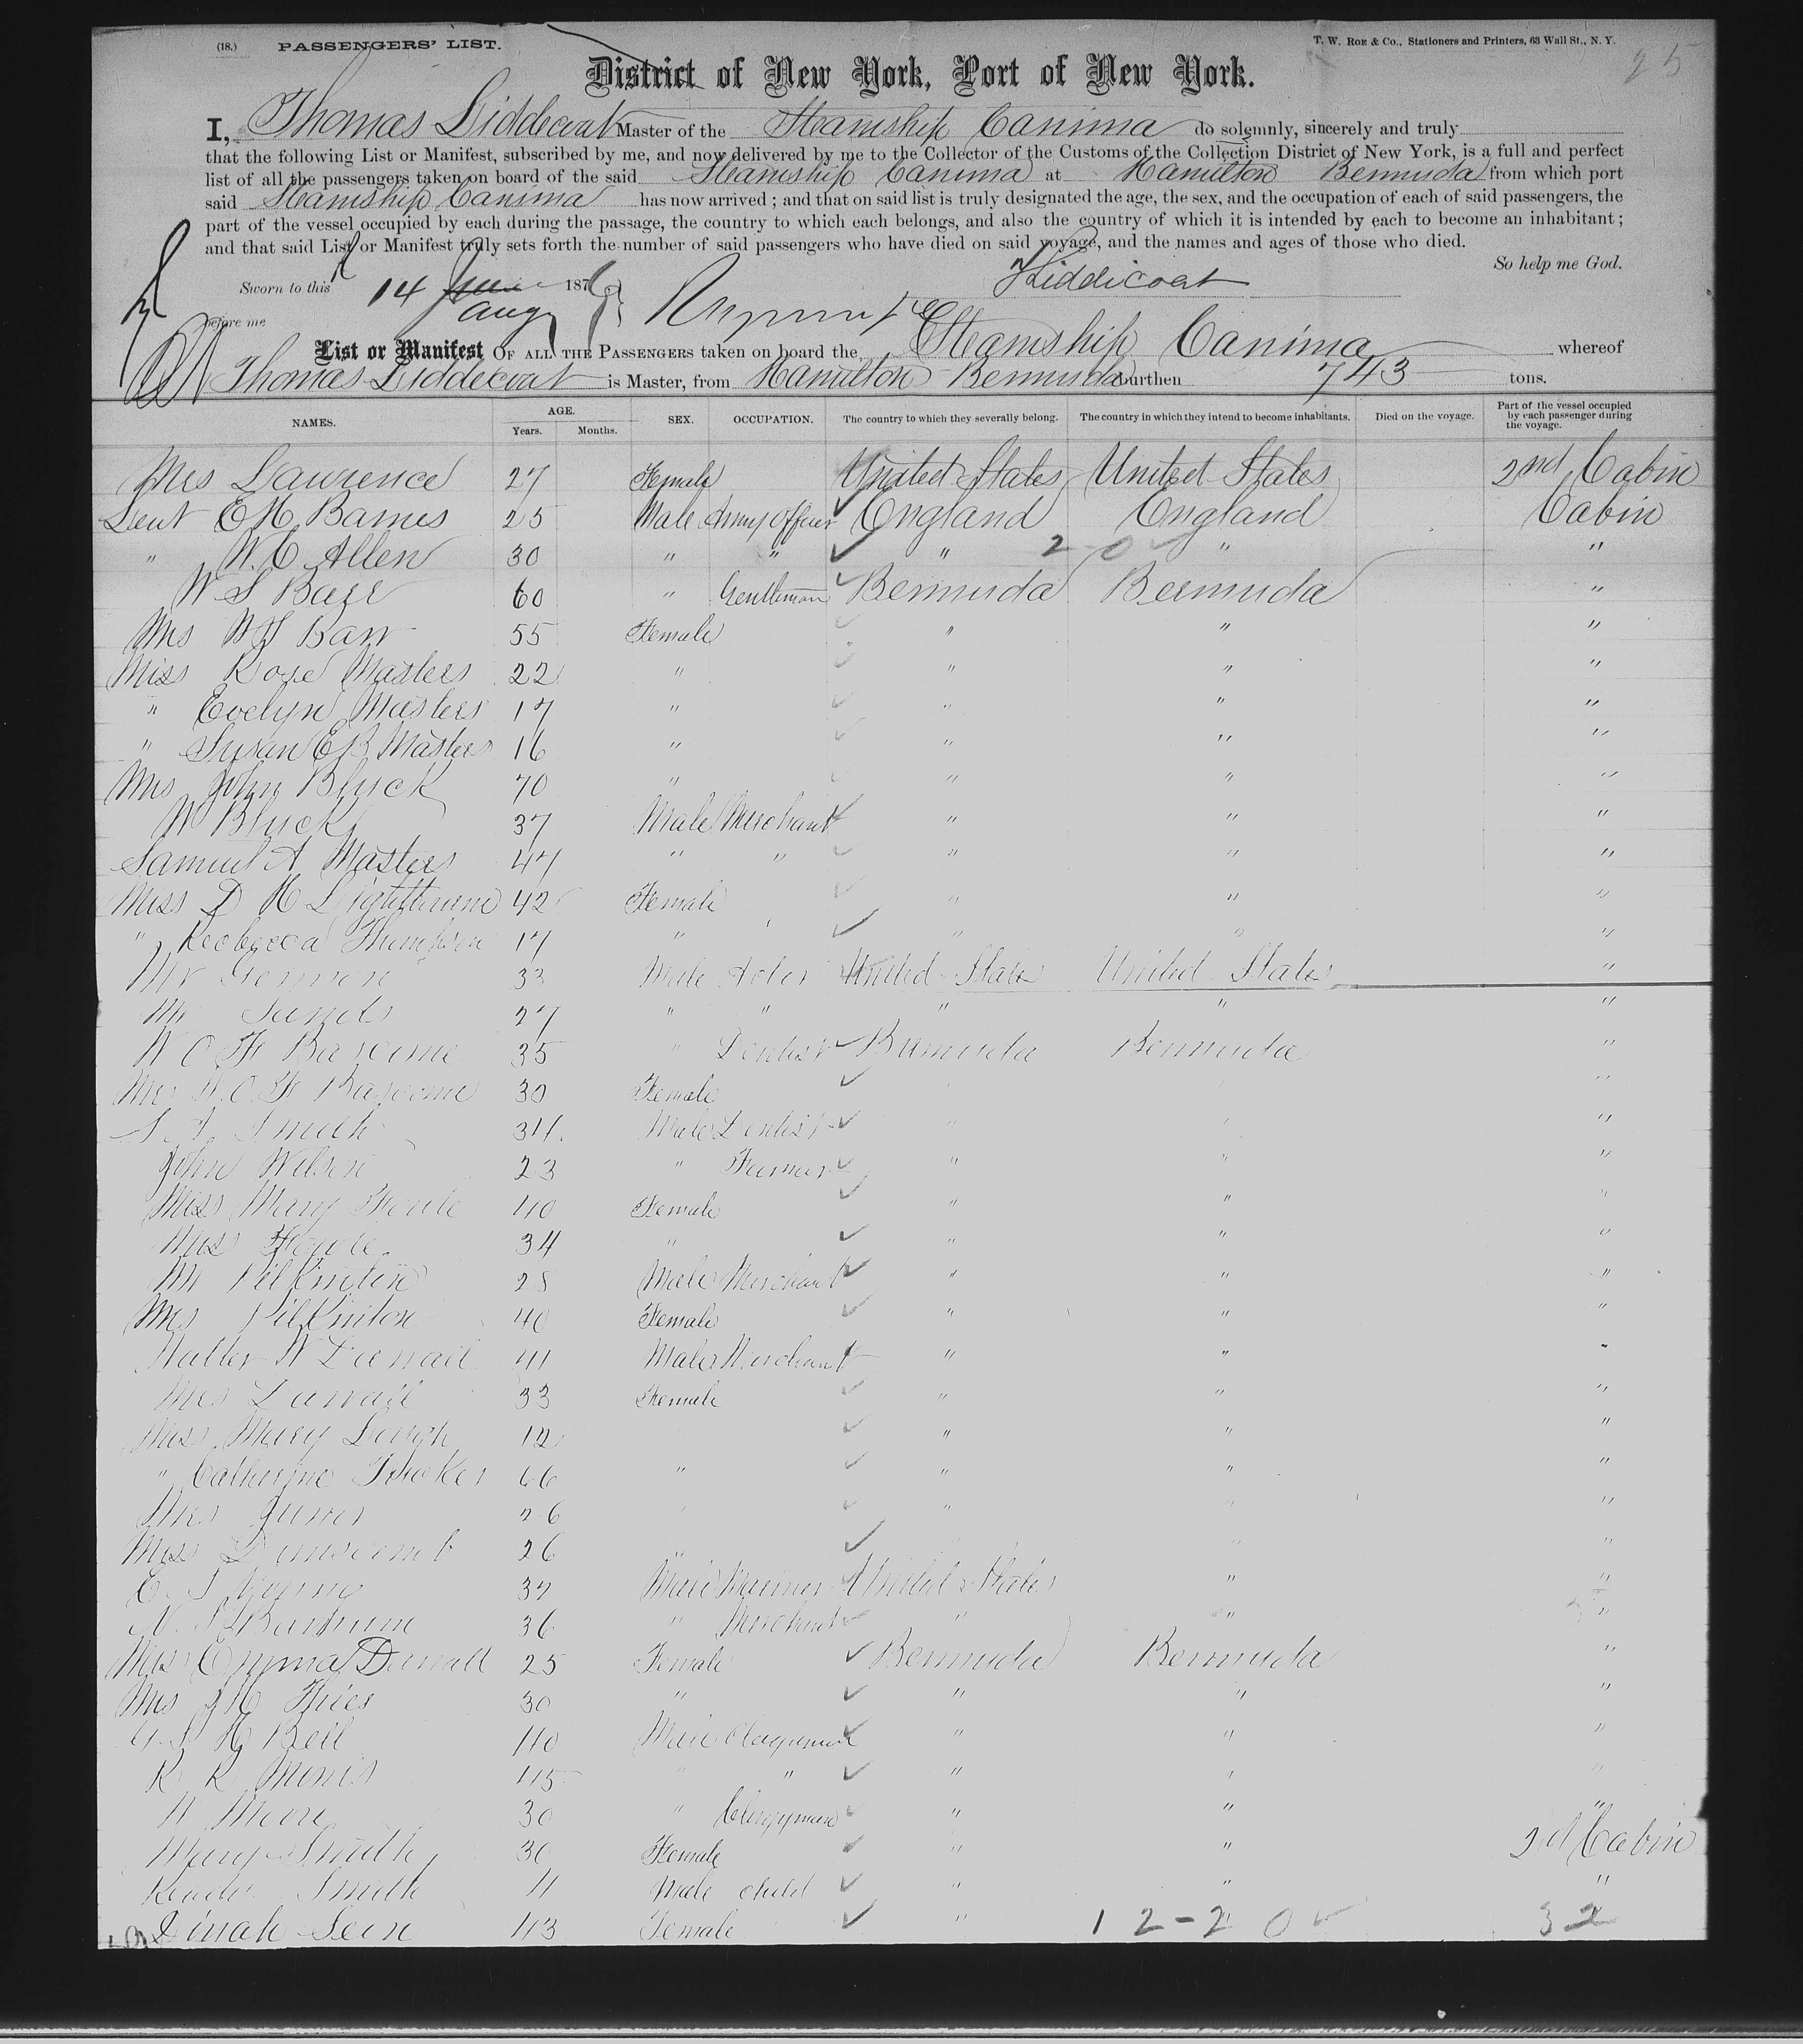 (18.) PASSENGERS' LIST. T. W. ROE & CO., Stationers and Printers, 63 Wall St., N. Y.
25
District of New York, Port of New York.
I, Thomas Liddecoat Master of the Steamship Canima do solemnly, sincerely and truly
that the following List or Manifest, subscribed by me, and now delivered by me to the Collector of the Customs of the Collection District of New York, is a full and perfect
list of all the passengers taken on board of the said Steamship Canima at Hamilton Bermuda from which port
said Steamship Canima has now arrived; and that on said list is truly designated the age, the sex, and the occupation of each of said passengers, the
part of the vessel occupied by each during the passage, the country to which each belongs, and also the country of which it is intended by each to become an inhabitant;
and that said List or Manifest truly sets forth the number of said passengers who have died on said voyage, and the names and ages of those who died.
So help me God.
Sworn to this 14 Aug 1876 Liddicoat
before me
List or Manifest OF ALL THE PASSENGERS taken on board the Steamship Canima whereof
Thomas Liddecoat is Master, from Hamilton Bermuda burthen 743 tons.
NAMES. AGE. Years. Months. SEX. OCCUPATION. The country to which they severally belong. The country in which they intend to become inhabitants. Died on the voyage. Part of the vessel occupied by each passenger during the voyage.
Mrs Lawrence 27 Female United States United States 2nd Cabin
Leut E H Barnes 25 Male Army Officer England England Cabin
" W. C Allen 30 " " " 2-0 " "
W S Barr 60 " Gentleman Bermuda Bermuda "
Mrs W S Barr 55 Female " " "
Miss Rose Masters 22 " " " "
" Evelyn Masters 17 " " " "
" Susan E B Masters 16 " " " "
Mrs John Bluck 70 " " " "
W Bluck 37 Male Merchant " " "
Samuel A Masters 47 " " " " "
Miss D H Lightbourne 42 Female " " "
" Rebecca Thompson 17 " " " "
Mr 33 Male Actor United States United States "
Mr Sands 27 " " " " "
W O F Bascome 35 " Dentist Bermuda Bermuda "
Mrs W. O. F Bascome 30 Female "
S A Smith 34 Male Dentist " "
John Wilson 23 " Farmer " " "
Miss Mary Fowle 40 Female " " "
Miss Fowle 34 " " " "
Mr Pilkinton 28 Male Merchant " " "
Mrs Pilkinton 40 Female " " "
Walter W 41 Male Merchant " " "
Mrs 33 Female " " "
Miss Mary 12 " " "
" Catherine Tucker 66 " " " "
Mrs 26 " " "
Miss Dunscomb 26 "
C. S Young 37 Male Mariner United States " "
N. S 36 " Merchant " " "
Miss Emma 25 Female Bermuda Bermuda "
Mrs J H 30 " " " "
H Bell 40 Male Clergyman " " "
R R 45 " " " "
W Moore 30 " Clergyman " " "
Mary Smith 30 Female " " 2d Cabin
Smith 4 Male child " " "
Dinah 43 Female " 12-2 0 32